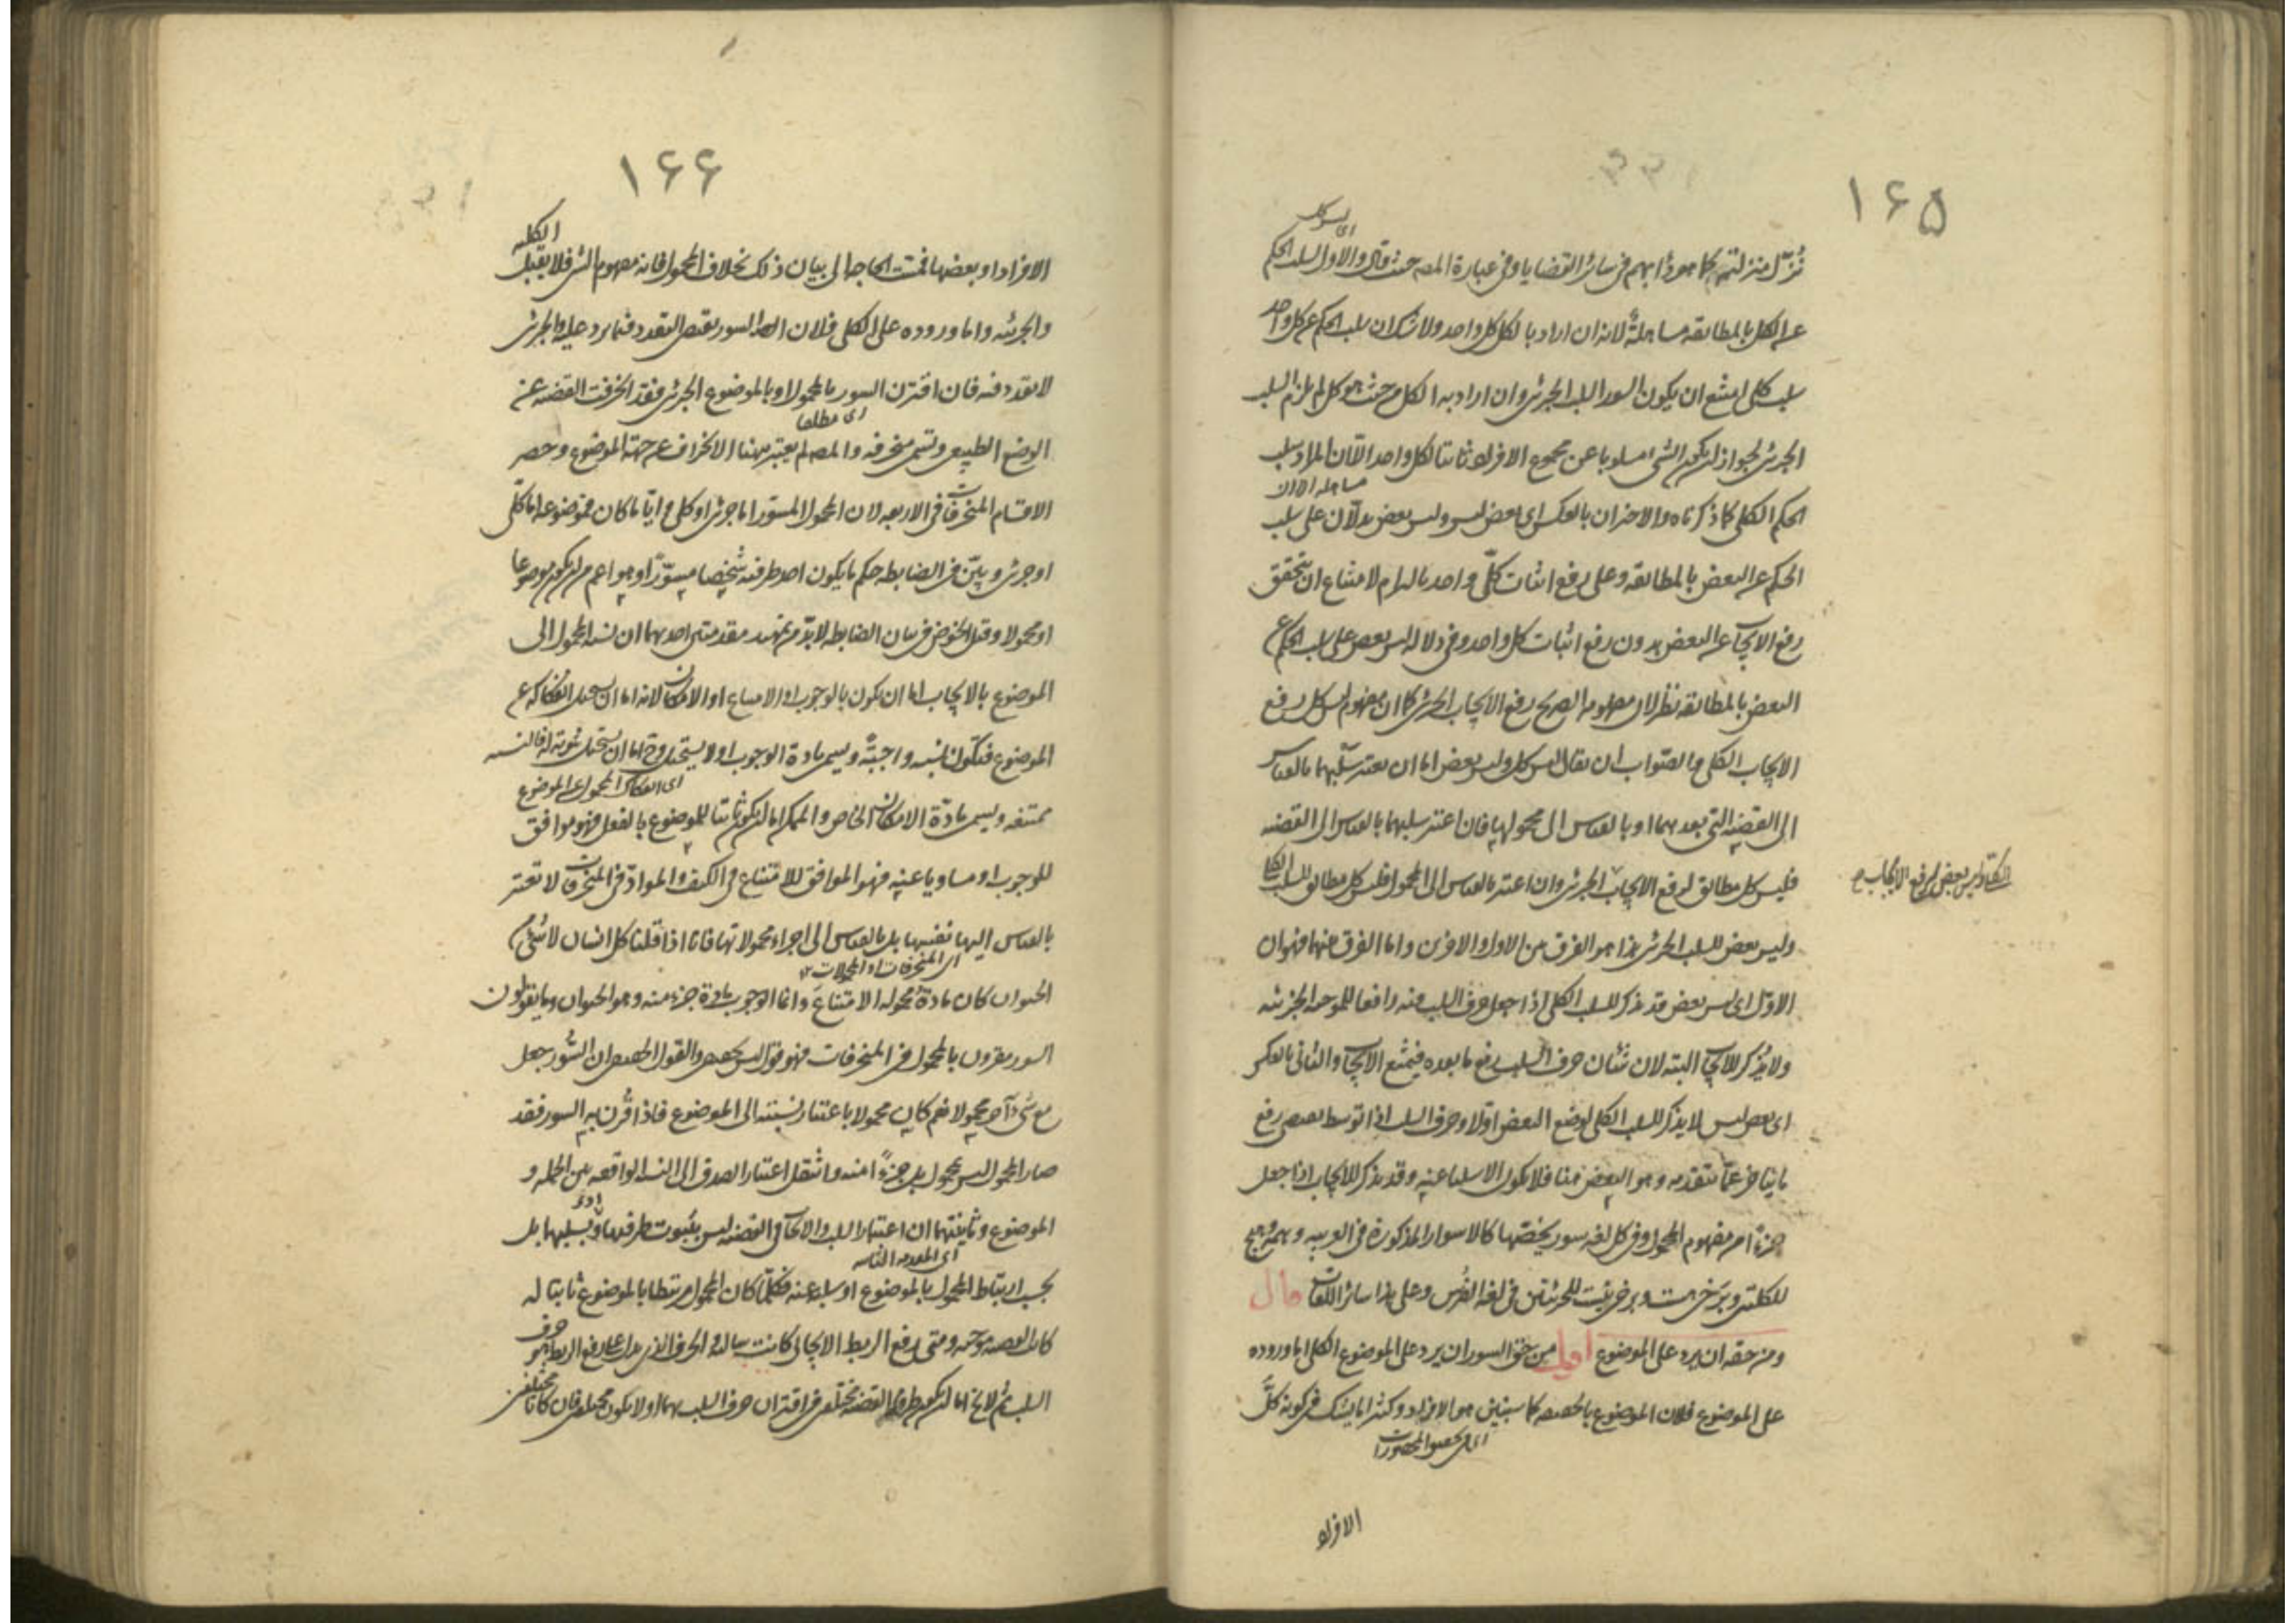 ١٦٥
اى ليس كل
نُزّل منزلته كما هو دأبهم فى سائر القضايا وفى عبارة المصـ حيث قال والاول لسلب الحكم
عن الكل بالمطابقة مساهلةٌ لانه ان اراد بالكل كل واحد ولا شك ان سلب الحكم عن كل واحد
سلب كلى امتنع ان يكون السور للسلب الجزئى وان اراد به الكل من حيث هو كل لم يلزم السلب
الجزئى لجواز ان يكون الشىء مسلوبا عن مجموع الافراد ثابتا لكل واحد الا ان المراد سلب
الحكم الكلى كما ذكرناه والاخيران بالعكس اى بعض ليس وليس بعض يدلّان على سلب
الحكم عن البعض بالمطابقة وعلى رفع اثبات كلّ واحد بالالتزام لامتناع ان يتحقق
رفع الايجاب عن البعض بدون رفع اثبات كل واحد وفى دلالة ليس بعض على سلب الحكم عن
البعض بالمطابقة نظر لان مفهومه الصريح رفع الايجاب الجزئى كما ان مفهوم ليس كل رفع
الايجاب الكلى والصواب ان يقال ليس كل وليس بعض اما ان يعتبر سلبهما بالقياس
الى القضية التى بعدهما او بالقياس الى محمولها فان اعتبر سلبهما بالقياس الى القضية
فليس كل مطابق لرفع الايجاب الجزئى وان اعتبر بالقياس الى المحمول فليس كل مطابق للسلب الكلى
الكلى وليس بعض لرفع الايجاب
وليس بعض للسلب الجزئى هذا هو الفرق بين الاول والاخيرين واما الفرق بينهما فهو ان
الاول اى ليس بعض قد يذكر للسلب الكلى اذا جعل حرف السلب فيه رافعا للموجبة الجزئية
ولا يُذكر للايجاب البتة لان شان حرف السلب رفع ما بعده فيمتنع الايجاب والثانى بالعكس
اى بعض ليس لا يذكر للسلب الكلى لوضع البعض اولا وحرف السلب اذا توسط يقتضى رفع
ما يتاخر عمّا يتقدمه وهو البعض هنا فلا يكون الا سلبا عنه وقد يذكر للايجاب اذا جعل
جزءًا من مفهوم المحمول وفى كل لغة سور يخصّها كالاسوار المذكورة فى العربية وهمه وهيچ
للكلّيتين وبرخى هست وبرخى نيست للجزئيتين فى لغة الفُرس وعلى هذا سائر اللغات قال
ومن حقه ان يرد على الموضوع اقول من حق السور ان يرد على الموضوع الكلى اما وروده
على الموضوع فلان الموضوع بالحقيقة كما سيتبين هو الافراد وكثيرا ما يشك فى كونه كلَّ
الافراد
١٦٦
الكلية
الافراد او بعضها فمسّت الحاجة الى بيان ذلك بخلاف المحمول فانه مفهوم الشىء فلا يقبل
والجزئية واما وروده على الكلى فلان السور يقتضى التعدد فيما يرد عليه والجزئى
لا تعدد فيه فان اقترن السور بالمحمول او بالموضوع الجزئى فقد انحرفت القضية عن
اى مطلقا
الوضع الطبيعى وتسمى منحرفة والمصـ لم يعتبر هنا الانحراف عن جهة الموضوع وحصر
الاقسام المنحرفات فى الاربعة لان المحمول المسوّر اما جزئى او كلى وايّا ما كان فموضوعه اما كلّى
او جزئى وبيّن فى الضابطة حكم ما يكون احد طرفيه شخصا مسوّرا وهو اعم من ان يكون موضوعا
او محمولا وقبل الخوض فى بيان الضابطة لابدّ من تمهيد مقدمتين احديهما ان نسبة المحمول الى
الموضوع بالايجاب اما ان يكون بالوجوب او الامتناع او الامكان لانه اما ان يستحيل انفكاكه عن
الموضوع فتكون النسبة واجبةً ويسمى مادة الوجوب او لا يستحيل وح اما ان يستحيل ثبوته له فالنسبة
اى انفكاك المحمول عن الموضوع
ممتنعة ويسمى مادّة الامكان الخاص والممكن اما ان يكون ثابتا للموضوع بالفعل فهو موافق
للوجوب او مساويا عنه فهو الموافق للامتناع فى الكيف والموادّ فى المنحرفات لا تعتبر
بالقياس اليها نفسها بل بالقياس الى اجزاء محمولاتها فانا اذا قلنا كل انسان لا شىء من
اى المنحرفات او المحمولات ١٢
الحيوان كان مادة محموله الامتناعَ وانما الوجوب مادة جزء منه وهو الحيوان وما يقولون
السور مقرون بالمحمول فى المنحرفات فهو قول ليس بحقيقى والقول الحقيقى ان السُّور جعل
مع شىء آخر محمولا نعم كان محمولا باعتبار نسبته الى الموضوع فاذا قُرن به السور فقد
صار المحمول ليس بمحمول بل جزءًا منه وانتقل اعتبار الصدق الى النسبة الواقعة بين الجملة و
الموضوع وثانيتهما ان اعتبار السلب والايجاب فى القضية ليس بثبوت طرفيها وبسلبهما بل
اى المقدمة الثانية
بحسب ارتباط المحمول بالموضوع او سلبه عنه فكلّما كان المحمول مرتبطا بالموضوع ثابتا له
كانت القضية موجبة ومتى رفع الربط الايجابى كانت سالبة والحرف الذى يدل على رفع الربط هو حرف
السلب ثم لا يخ اما ان يكون طرفا القضية مختلفى فى اقتران حرف السلب بهما او لا يكون مختلفى فان كانا مختلفى